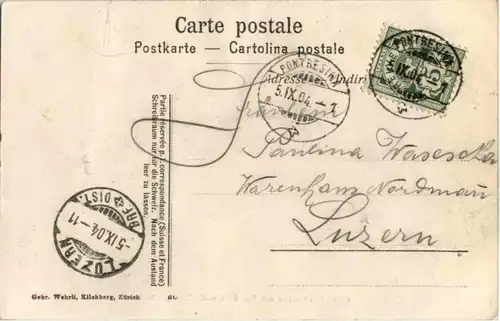 Carte postale
Postkarte — Cartolina postale
Adresse
PONTRESINA
5.IX.04.-7
PONTRESINA
5.IX.04.-7
Fräulein
Paulina Wasescha
Warenhaus Nordman
Luzern
Partie réservée p. l. correspondance (Suisse et France)
Schreibraum nur für die Schweiz. Nach dem Ausland
leer zu lassen.
BRF. DIST.
-5.IX.04.-11
LUZERN
Gebr. Wehrli, Kilchberg, Zürich